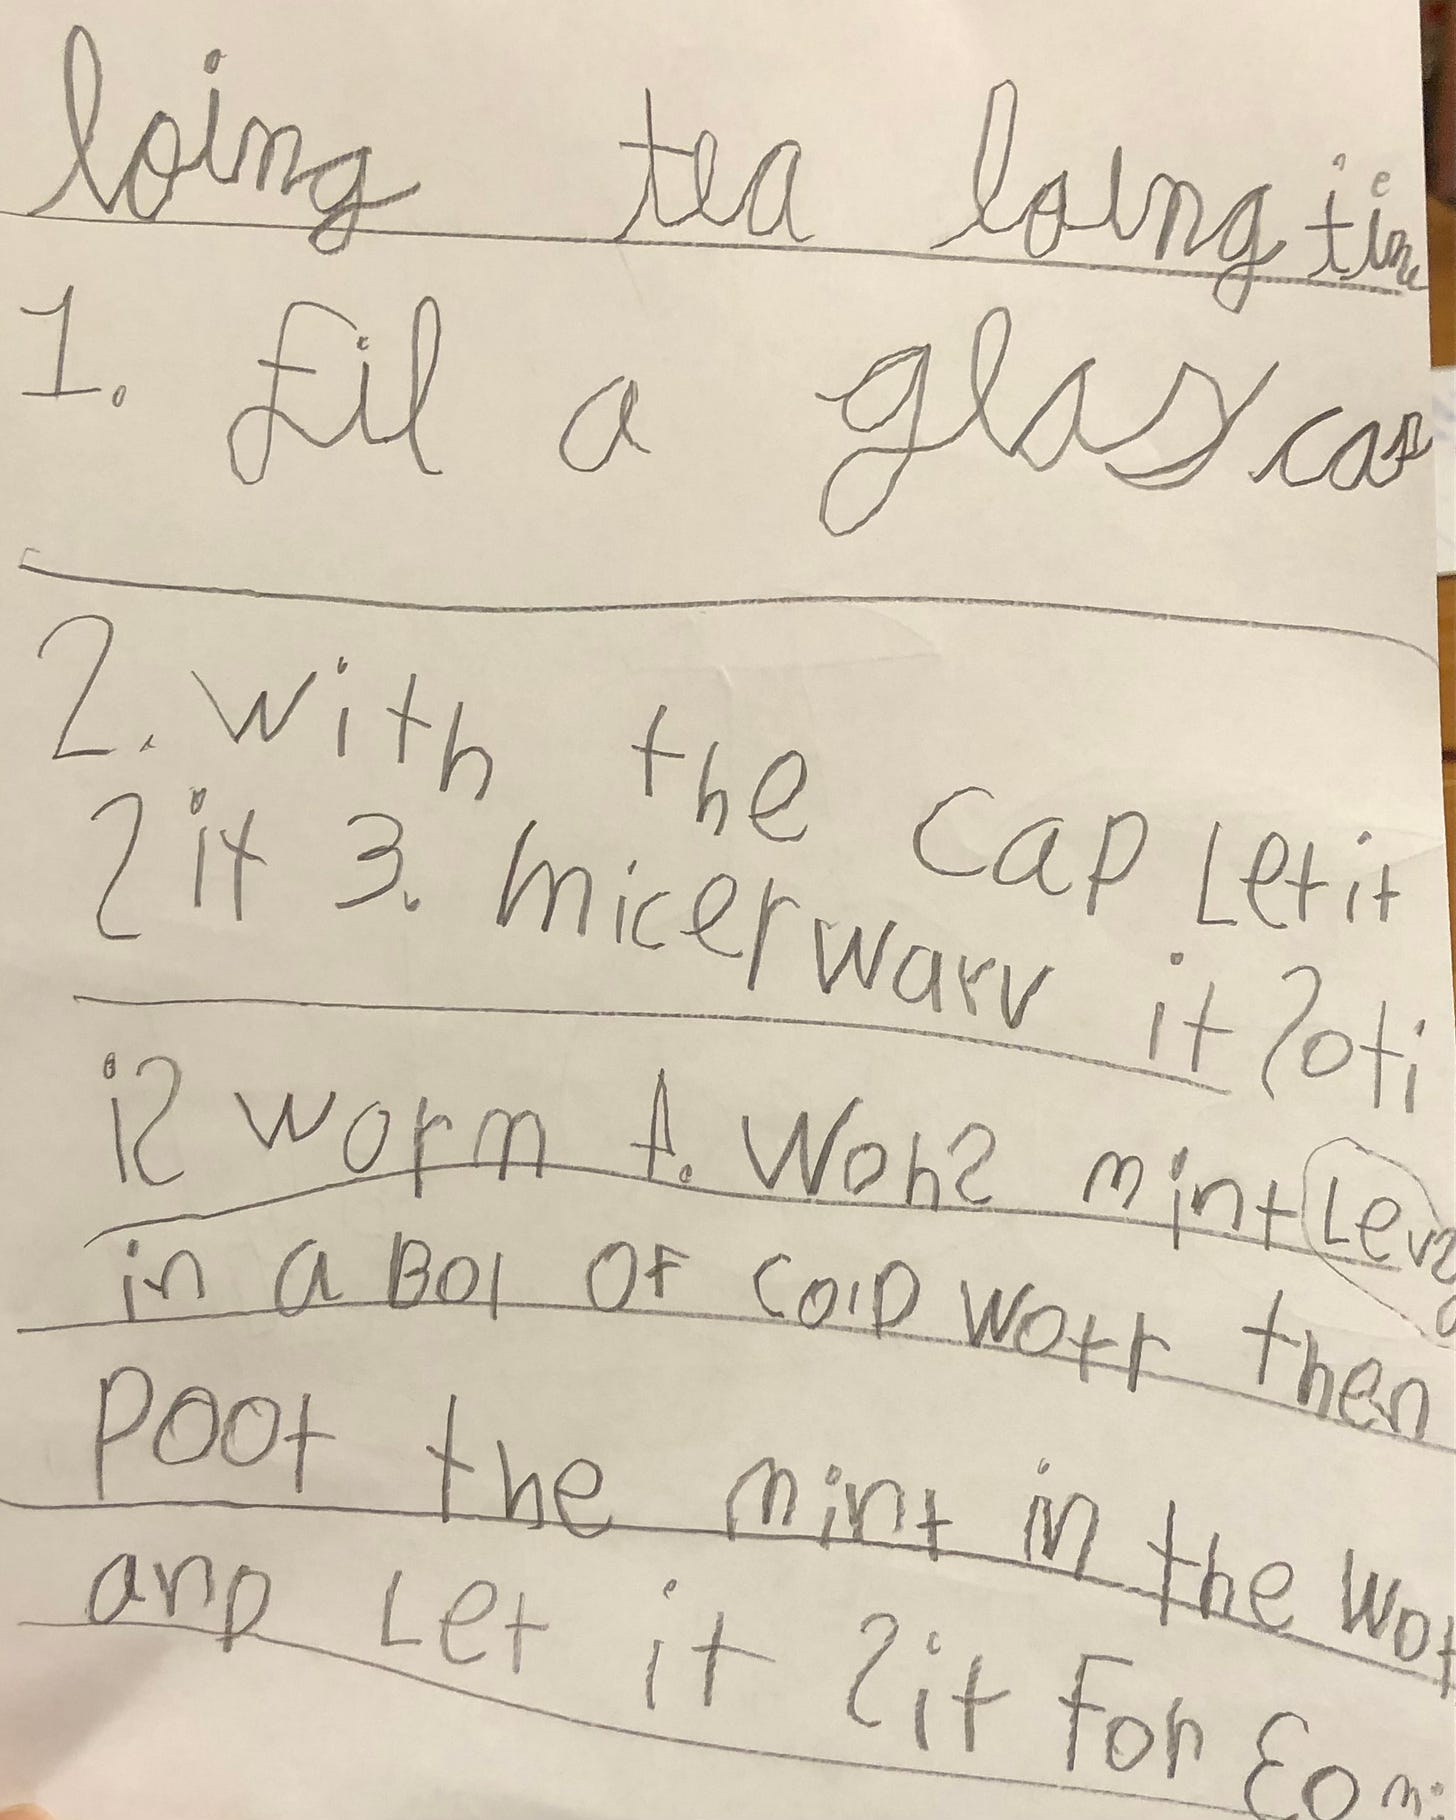 loing tea loing time
1. fil a glas cap
2. with the cap Let it
sit 3. micerwarv it soti
is worm 4. Wohs mint Levs
in a Bol OF colD wotr then
poot the mint in the wot
anD Let it sit For